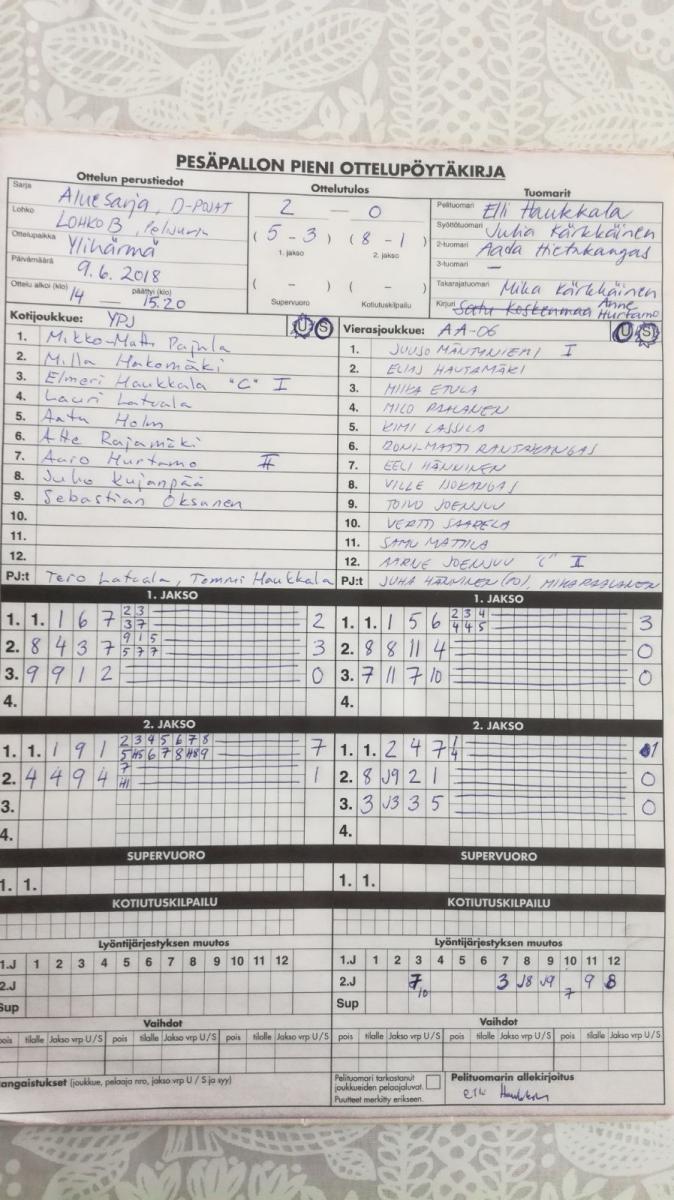 PESÄPALLON PIENI OTTELUPÖYTÄKIRJA
Ottelun perustiedot
Ottelutulos
Tuomarit
Sarja Aluesarja, D-POJAT
2 — 0
Pelituomari Elli Haukkala
Lohko LOHKO B,
( 5 - 3 ) ( 8 - 1 )
Syöttötuomari Julia Kärkkäinen
1. jakso 2. jakso
Ottelupaikka Ylihärmä
2-tuomari Aada Hietakangas
3-tuomari —
Päivämäärä 9.6.2018
( - ) ( - )
Takarajatuomari Mika Kärkkäinen
Ottelu alkoi (klo) 14 — päättyi (klo) 15.20
Supervuoro Kotiutuskilpailu
Kirjuri Satu Koskenmaa Anne Hurtamo
Kotijoukkue: YPJ U S
1. Mikko-Matti Pajula
2. Milla Hakomäki
3. Elmeri Haukkala "C" I
4. Lauri Latvala
5. Aatu Holm
6. Atte Rajamäki
7. Aaro Hurtamo II
8. Juho Kujanpää
9. Sebastian Oksanen
10.
11.
12.
PJ:t Tero Latvala, Tommi Haukkala
Vierasjoukkue: AA-06 U S
1. JUUSO MÄNTYNIEMI I
2. ELIAS HAUTAMÄKI
3. MIIKA ETULA
4. MILO PAALANEN
5. KIMI LASSILA
6. RONI-MATTI RANTAKANGAS
7. EELI HÄNNINEN
8. VILLE ISOKANGAS
9. TOIVO JOENSUU
10. VERTTI SAARELA
11. SAMU MATTILA
12. AARNE JOENSUU "C" II
PJ:t JUHA HÄNNINEN (PJ), MIKA PAALANEN
1. JAKSO
1. 1. 1 6 7 2 3 2
3 7
2. 8 4 3 7 9 1 5 3
5 7 7
3. 9 9 1 2 0
4.
1. JAKSO
1. 1. 1 5 6 2 3 4 3
4 4 5
2. 8 8 11 4 0
3. 7 11 7 10 0
4.
2. JAKSO
1. 1. 1 9 1 2 3 4 5 6 7 8 7
5 H5 6 7 8 H8 9
2. 4 4 9 4 7 1
H1
3.
4.
2. JAKSO
1. 1. 2 4 7 1 1
4
2. 8 J9 2 1 0
3. 3 J3 3 5 0
4.
SUPERVUORO
1. 1.
SUPERVUORO
1. 1.
KOTIUTUSKILPAILU
KOTIUTUSKILPAILU
Lyöntijärjestyksen muutos
1.J 1 2 3 4 5 6 7 8 9 10 11 12
2.J
Sup
Lyöntijärjestyksen muutos
1.J 1 2 3 4 5 6 7 8 9 10 11 12
2.J 7 10 3 J8 J9 7 9 8
Sup
Vaihdot
pois tilalle Jakso vrp U/S pois tilalle Jakso vrp U/S pois tilalle Jakso vrp U/S
Vaihdot
pois tilalle Jakso vrp U/S pois tilalle Jakso vrp U/S pois tilalle Jakso vrp U/S
angaistukset (joukkue, pelaaja nro, jakso vrp U / S ja syy)
Pelituomari tarkastanut
joukkueiden pelaajaluvat.
Puutteet merkitty erikseen.
Pelituomarin allekirjoitus
Elli Haukkala